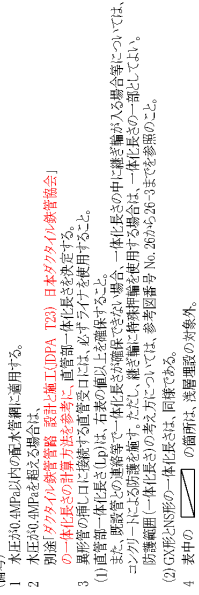 1 水圧が0.4MPa以内の配水管網に適用する。
2 水圧が0.4MPaを超える場合は、
別途「ダクタイル鉄管管路 設計と施工(JDPA T23) 日本ダクタイル鉄管協会」
の一体化長さの計算方法を参考に、直管部一体化長さを決定する。
3 異形管の挿し口に接続する直管受口には、必ずライナを使用すること。
(1)直管部一体化長さ(Lp)は、右表の値以上を確保すること。
また、既設管との連絡等で一体化長さが確保できない場合、一体化長さの中に継ぎ輪が入る場合等については、
コンクリートによる防護を施す。ただし、継ぎ輪に特殊押輪を使用する場合は、一体化長さの一部としてよい。
防護範囲(一体化長さ)の考え方については、参考図番号 No. 26から26-3までを参照のこと。
(2)GX形とNS形の一体化長さは、同様である。
4 表中の の箇所は、浅層埋設の対象外。